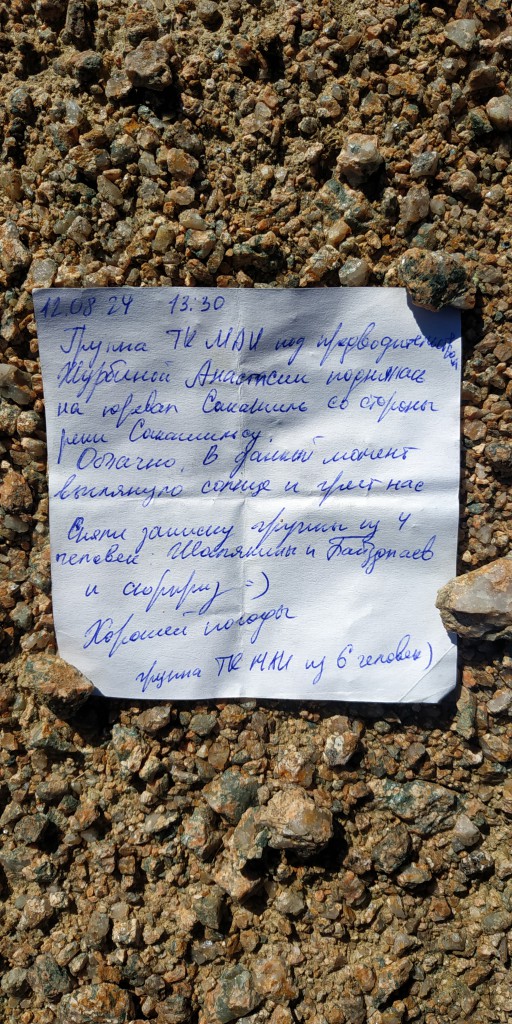 12.08.24 13:30
Группа ТК МАИ под предводительством
Журбиной Анастасии поднялась
на перевал со стороны
реки
Облачно. В данный момент
выглянуло солнце и греет нас
Сняли записку группы из 4
человек. и
и сюрприз =)
Хорошей погоды
группа ТК МАИ из 6 человек)